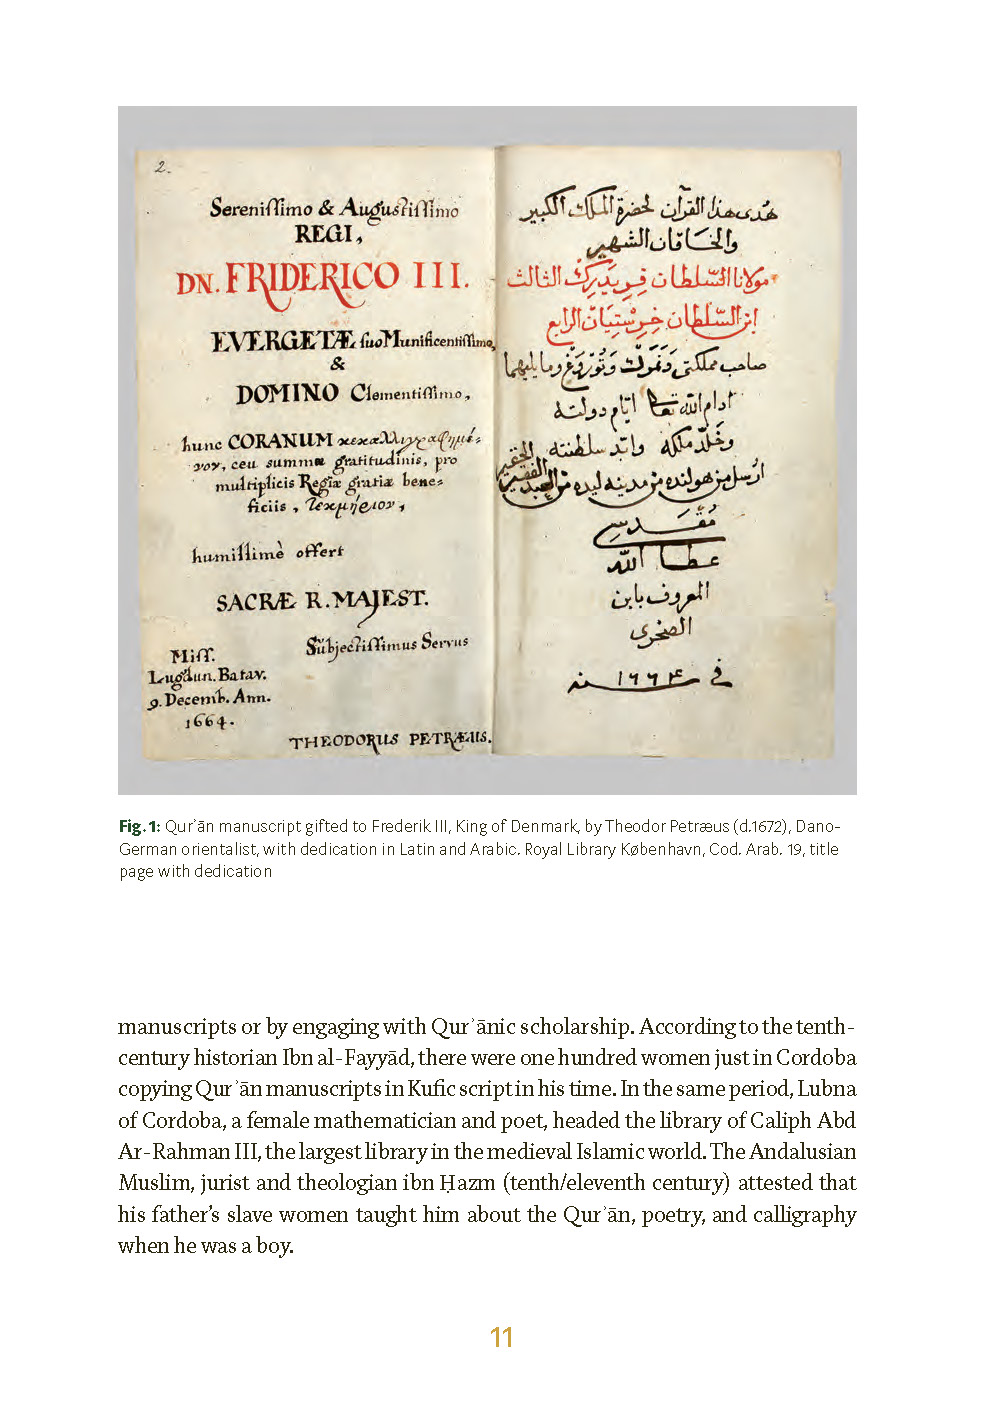 2.
Serenissimo & Augustissimo
REGI,
DN. FRIDERICO III.
EVERGETÆ suo Munificentissimo,
&
DOMINO Clementissimo,
hunc CORANUM κεκαλλιγραφημέ-
νον, ceu summæ gratitudinis, pro
multiplicis Regiæ gratiæ bene-
ficiis, τεκμήριον,
humillimè offert
SACRÆ R. MAJEST.
Subjectissimus Servus
Miss.
Lugdun. Batav.
9. Decemb. Ann.
1664.
THEODORUS PETRÆUS.
هدى هذا القرآن لحضرة الملك الكبير
والخاقان الشهير
مولانا السّلطان فريدرك الثالث
ابن السّلطان خرستيان الرابع
صاحب مملكتى دنمرك ونورويغ وما يليهما
ادام الله تعا ايّام دولته
وخلّد ملكه وابّد سلطنته
ارسل من هولنده من مدينه ليده من العبد الفقير الحقير
مُقَدسي
عطا الله
المعروف بابن
الصخرى
في سنه ١٦٦٤
Fig.1: Qurʾān manuscript gifted to Frederik III, King of Denmark, by Theodor Petræus (d.1672), Dano-
German orientalist, with dedication in Latin and Arabic. Royal Library København, Cod. Arab. 19, title
page with dedication
manuscripts or by engaging with Qurʾānic scholarship. According to the tenth-
century historian Ibn al-Fayyād, there were one hundred women just in Cordoba
copying Qurʾān manuscripts in Kufic script in his time. In the same period, Lubna
of Cordoba, a female mathematician and poet, headed the library of Caliph Abd
Ar-Rahman III, the largest library in the medieval Islamic world. The Andalusian
Muslim, jurist and theologian ibn Ḥazm (tenth/eleventh century) attested that
his father’s slave women taught him about the Qurʾān, poetry, and calligraphy
when he was a boy.
11